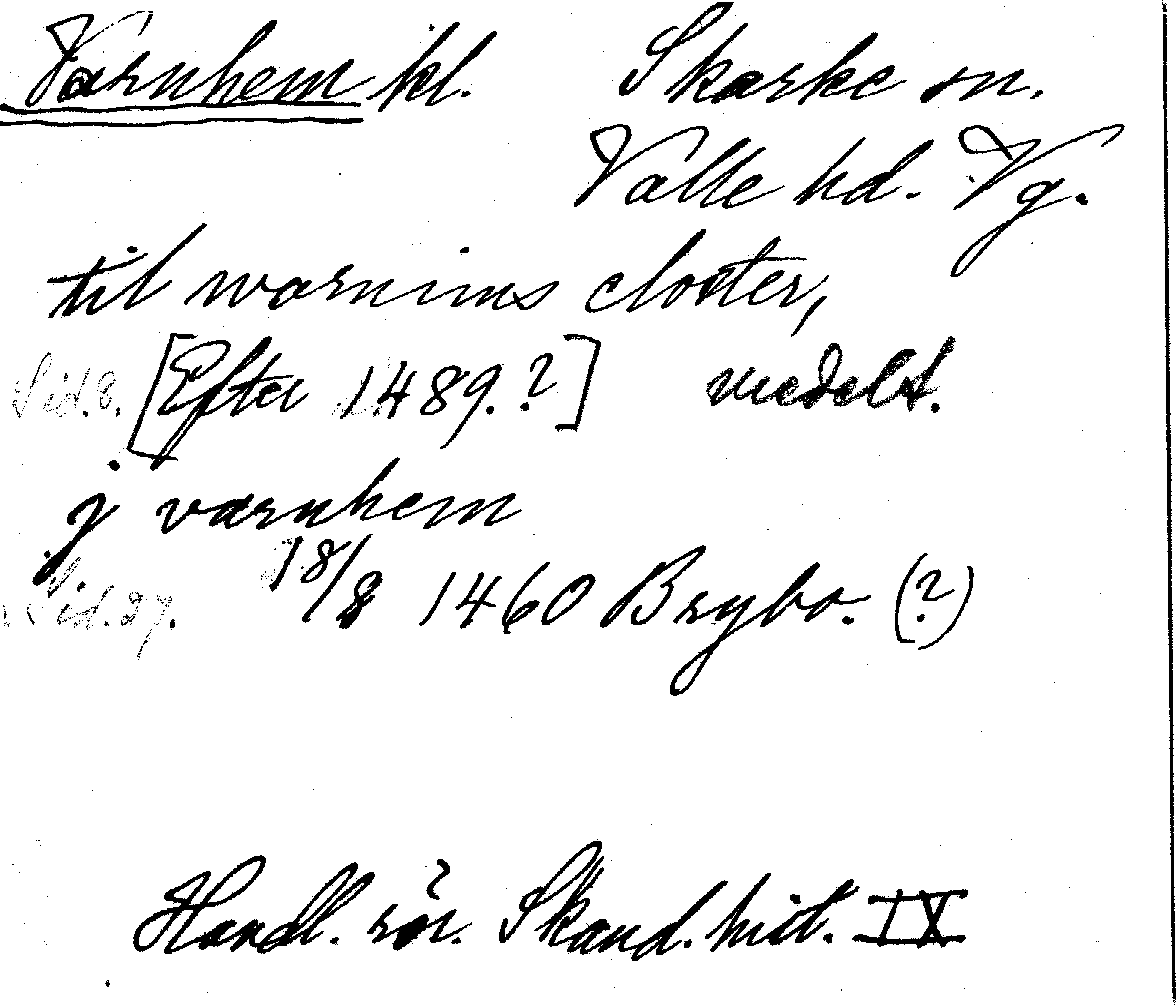 Varnhem kl. Skarke sn.
Valle hd. Vg.
til warnims closter,
Sid. 8. [Efter 1489. ?] medelt.
j varnhem
Sid. 27. 18/8 1460 Brybo. (?)
Handl. rör. Skand. hist. IX